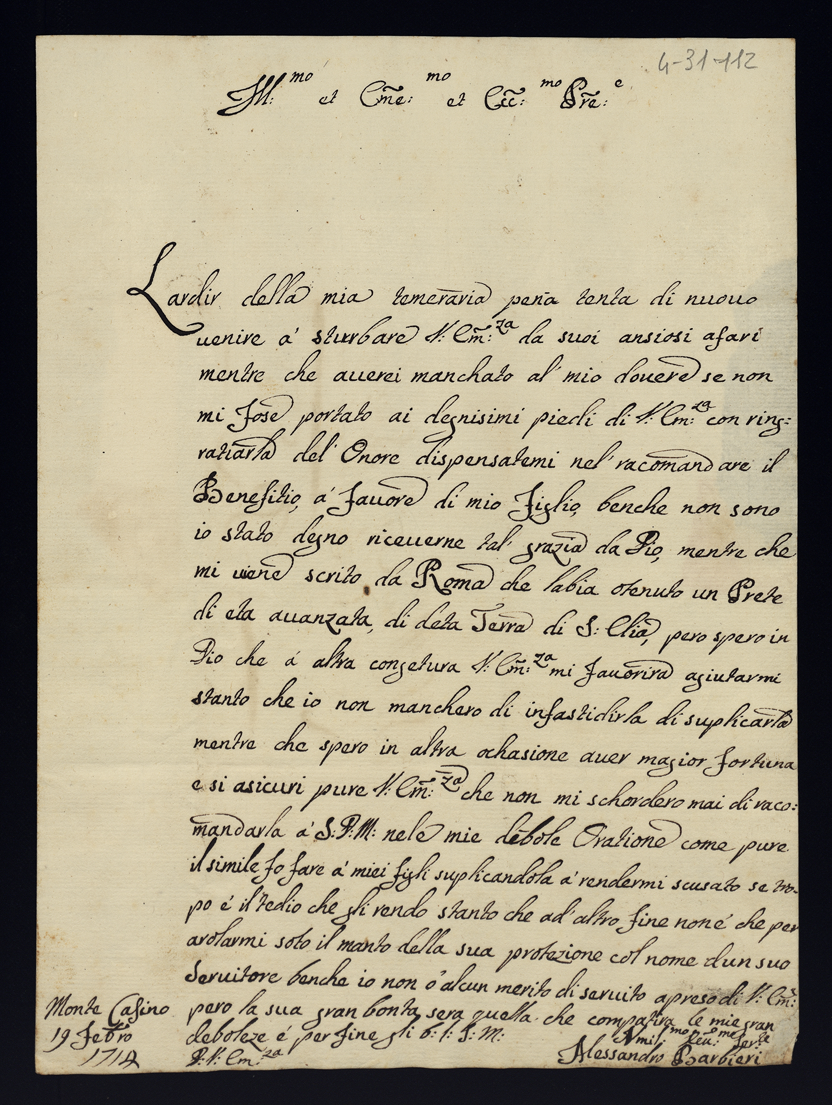 4-31-112
Ill:mo et Eme:mo et Ecc:mo Pre:e
Lardir della mia temeraria pena tenta di nuouo
uenire a' sturbare V: Em:za da suoi ansiosi afari
mentre che auerei manchato al' mio douere se non
mi fose portato ai degnisimi piedi di V: Em:za con ring=
ratiarla del' Onore dispensatemi nel' racomandare il
Benefitio, a' fauore di mio figlio, benche non sono
io stato degno riceuerne tal' grazia da Dio, mentre che
mi uiene scrito da Roma che labia otenuto un Prete
di eta auanzata, di deta Terra di S: Elia, pero spero in
Dio che á altra congetura V: Em:za mi fauorira agiutarmi
stanto che io non manchero di infastidirla di suplicarla
mentre che spero in altra ochasione auer magior fortuna
e si asicuri pure V: Em:za che non mi schordero mai di raco:
mandarla á S: D: M: nele mie debole Oratione come pure
il simile fo fare a' miei figli suplicandola a' rendermi scusato se tro-
po é il tedio che gli rendo stanto che ad' altro fine non é che per
arolarmi soto il manto della sua protezione col nome dun suo
Seruitore benche io non ó alcun merito di seruito apreso di V: Em:a
pero la sua gran bonta sera quella che compatira le mie gran
deboleze é per fine gli b: l: S: M:
Monte Casino
19 Febro
1714
D: V: Em:za
Vmil:mo Deu:mo Ser:re
Alessandro Barbieri